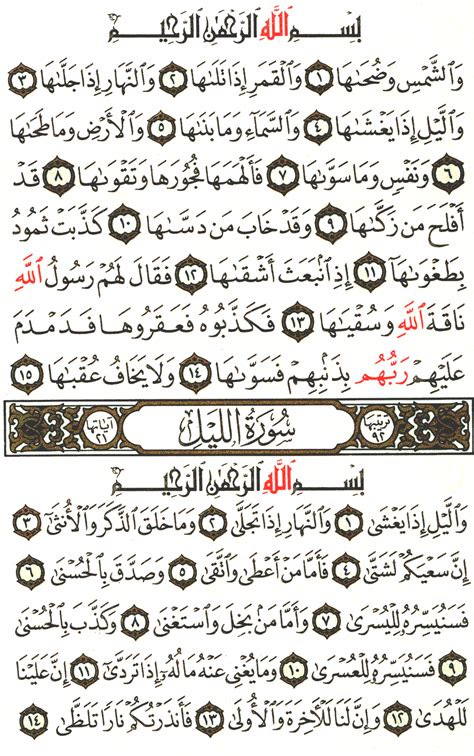 بِسْمِ ٱللَّهِ ٱلرَّحْمَٰنِ ٱلرَّحِيمِ
وَٱلشَّمْسِ وَضُحَىٰهَا ١ وَٱلْقَمَرِ إِذَا تَلَىٰهَا ٢ وَٱلنَّهَارِ إِذَا جَلَّىٰهَا ٣
وَٱلَّيْلِ إِذَا يَغْشَىٰهَا ٤ وَٱلسَّمَآءِ وَمَا بَنَىٰهَا ٥ وَٱلْأَرْضِ وَمَا طَحَىٰهَا
٦ وَنَفْسٍ وَمَا سَوَّىٰهَا ٧ فَأَلْهَمَهَا فُجُورَهَا وَتَقْوَىٰهَا ٨ قَدْ
أَفْلَحَ مَن زَكَّىٰهَا ٩ وَقَدْ خَابَ مَن دَسَّىٰهَا ١٠ كَذَّبَتْ ثَمُودُ
بِطَغْوَىٰهَآ ١١ إِذِ ٱنۢبَعَثَ أَشْقَىٰهَا ١٢ فَقَالَ لَهُمْ رَسُولُ ٱللَّهِ
نَاقَةَ ٱللَّهِ وَسُقْيَٰهَا ١٣ فَكَذَّبُوهُ فَعَقَرُوهَا فَدَمْدَمَ
عَلَيْهِمْ رَبُّهُم بِذَنۢبِهِمْ فَسَوَّىٰهَا ١٤ وَلَا يَخَافُ عُقْبَٰهَا ١٥
ترتيبها ٩٢ سُورَةُ اللَّيْل آياتها ٢١
بِسْمِ ٱللَّهِ ٱلرَّحْمَٰنِ ٱلرَّحِيمِ
وَٱلَّيْلِ إِذَا يَغْشَىٰ ١ وَٱلنَّهَارِ إِذَا تَجَلَّىٰ ٢ وَمَا خَلَقَ ٱلذَّكَرَ وَٱلْأُنثَىٰٓ ٣
إِنَّ سَعْيَكُمْ لَشَتَّىٰ ٤ فَأَمَّا مَنْ أَعْطَىٰ وَٱتَّقَىٰ ٥ وَصَدَّقَ بِٱلْحُسْنَىٰ ٦
فَسَنُيَسِّرُهُۥ لِلْيُسْرَىٰ ٧ وَأَمَّا مَنۢ بَخِلَ وَٱسْتَغْنَىٰ ٨ وَكَذَّبَ بِٱلْحُسْنَىٰ
٩ فَسَنُيَسِّرُهُۥ لِلْعُسْرَىٰ ١٠ وَمَا يُغْنِى عَنْهُ مَالُهُۥٓ إِذَا تَرَدَّىٰٓ ١١ إِنَّ عَلَيْنَا
لَلْهُدَىٰ ١٢ وَإِنَّ لَنَا لَلْآخِرَةَ وَٱلْأُولَىٰ ١٣ فَأَنذَرْتُكُمْ نَارًا تَلَظَّىٰ ١٤